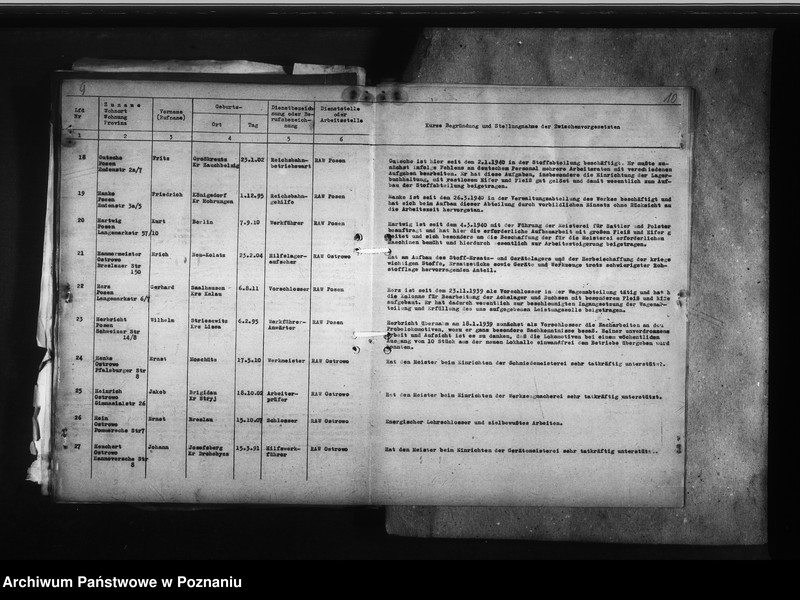 9
Lfd Nr
Zuname Wohnort Wohnung Provinz
Vorname (Rufname)
Geburts-
Ort
Tag
Dienststelle oder Arbeitsstelle
1 2 3 4 5 6
18 Posen Fritz 23.1.02 Reichsbahn- RAW Posen
betriebswart
19 Hanke Friedrich Königsdorf 1.12.95 Reichsbahn- RAW Posen
Posen Kr Mohrungen gehilfe
20 Hartwig Kurt Berlin 7.9.10 Werkführer RAW Posen
Posen
Langemarckstr 57/10
21 Hammermeister Erich 23.2.04 Hilfslager- RAW Ostrowo
Ostrowo aufseher
Breslauer Str
150
22 Gerhard 6.8.11 Vorschlosser RAW Posen
Posen
Langemarckstr 6/7
23 Herbricht Wilhelm Striesewitz 6.2.95 Werkführer- RAW Posen
Posen Kre Lissa Anwärter
Schweizer Str
14/8
24 Ernst 17.5.10 Werkmeister RAW Ostrowo
Ostrowo
Pfalzburger Str
8
25 Heinrich Jakob Brigidau 18.10.02 Arbeiter- RAW Ostrowo
Ostrowo Kr Stryj prüfer
Gimnasialstr 26
26 Hein Ernst Breslau 15.10.07 Schlosser RAW Ostrowo
Ostrowo
27 Johann Josefsberg 15.3.91 Hilfswerk- RAW Ostrowo
Ostrowo Kr Drohobycz führer
8
10
Kurze Begründung und Stellungnahme der Zwischenvorgesetzten
ist hier seit dem 2.1.1940 in der Stoffabteilung beschäftigt. Er mußte zu-
nächst infolge Fehlens an deutschem Personal mehrere Arbeitsraten mit verschiedenen
Aufgaben bearbeiten. Er hat diese Aufgaben, insbesondere die Einrichtung der Lager-
buchhaltung, mit rastlosem Eifer und Fleiß gut gelöst und damit wesentlich zum Auf-
bau der Stoffabteilung beigetragen.
Hanke ist seit dem 26.3.1940 in der Verwaltungsabteilung des Werkes beschäftigt und
hat sich beim Aufbau dieser Abteilung durch vorbildlichen Einsatz ohne Rücksicht auf
die Arbeitszeit hervorgetan.
Hartwig ist seit dem 4.3.1940 mit der Führung der Meisterei für Sattler und Polster
betraut und hat hier die erforderliche Aufbauarbeit mit großem Fleiß und Eifer
und sich besonders um die Beschaffung der für die Meisterei erforderlichen
Maschinen bemüht und hierdurch wesentlich zur Arbeitssteigerung beigetragen.
Hat am Aufbau des Stoff-Ersatz- und Gerätelagers und der Herbeischaffung der kriegs
wichtigen Stoffe, Ersatzstücke sowie Geräte und Werkzeuge trotz schwierigster Roh-
stofflage hervorragenden Anteil.
ist seit dem 23.11.1939 als Vorschlosser in der Wagenabteilung tätig und hat
die Kolonne für Bearbeitung der Achslager und Buchsen mit besonderem Fleiß und
aufgebaut. Er hat dadurch wesentlich zur beschleunigten Ingangsetzung der Wagenab-
teilung und Erfüllung des uns aufgegebenen Leistungssolls beigetragen.
Herbricht übernahm am 18.1.1939 zunächst als Vorschlosser die Nacharbeiten an den
Probelokomotiven, wozu er ganz besondere Sachkenntnisse besaß. Seiner unverdrossenen
Arbeit und Aufsicht ist es zu danken, daß die Lokomotiven bei einem wöchentlichen
Ausgang von 10 Stück aus der neuen Lokhalle einwandfrei dem Betriebe übergeben
konnten.
Hat den Meister beim Einrichten der Schmiedemeisterei sehr tatkräftig unterstützt.
Hat den Meister beim Einrichten der Werkzeugmacherei sehr tatkräftig unterstützt.
Energischer Lehrschlosser und zielbewußtes Arbeiten.
Hat den Meister beim Einrichten der Gerätemeisterei sehr tatkräftig unterstützt.
Archiwum Państwowe w Poznaniu